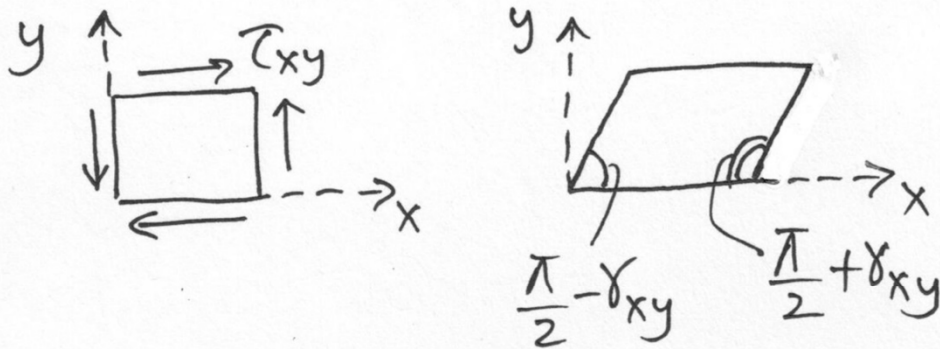 y
τxy
x
y
x
π/2 - γxy
π/2 + γxy